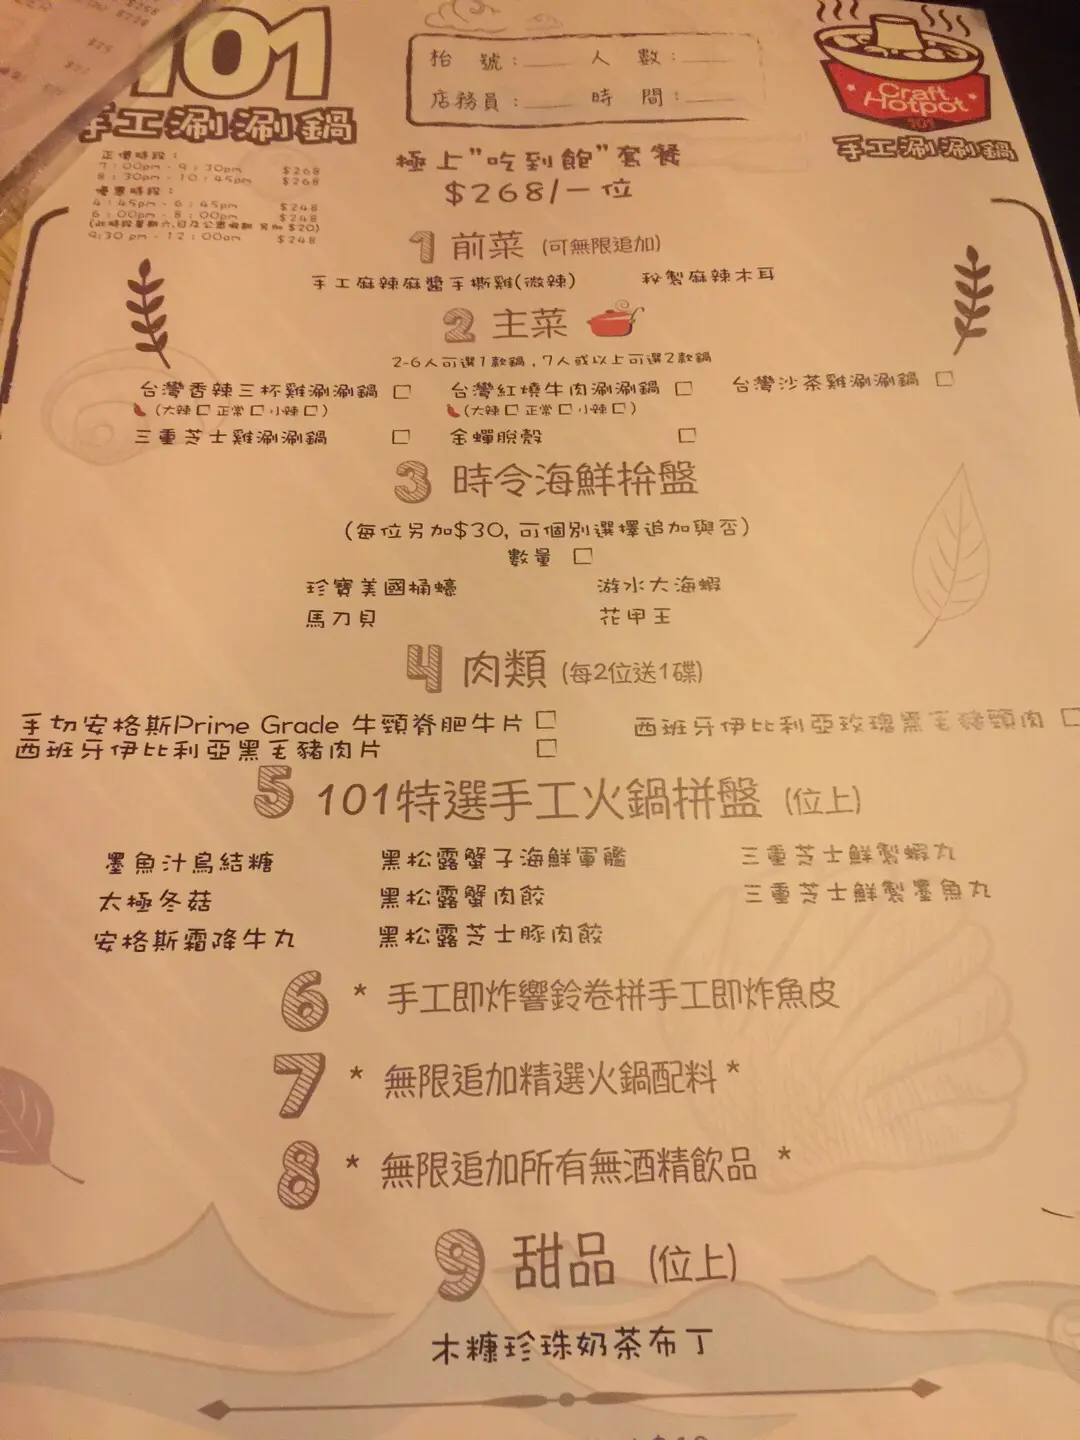 101
手工涮涮鍋
枱 號：____ 人 數：____
店務員：____ 時 間：____
Craft
Hotpot
101
手工涮涮鍋
正價時段：
7:00pm - 9:30pm $268
8:30pm - 10:45pm $268
優惠時段：
4:45pm - 6:45pm $248
6:00pm - 8:00pm $248
(此時段星期六,日及公眾假期 另加 $20)
9:30 pm - 12:00am $248
極上"吃到飽"套餐
$268/一位
1 前菜 (可無限追加)
手工麻辣麻醬手撕雞(微辣) 秘製麻辣木耳
2 主菜
2-6人可選1款鍋，7人或以上可選2款鍋
台灣香辣三杯雞涮涮鍋 □ 台灣紅燒牛肉涮涮鍋 □ 台灣沙茶雞涮涮鍋 □
(大辣□ 正常□ 小辣□) (大辣□ 正常□ 小辣□)
三重芝士雞涮涮鍋 □ 金蟬脫殼 □
3 時令海鮮拚盤
(每位另加$30, 可個別選擇追加與否)
數量 □
珍寶美國桶蠔 游水大海蝦
馬刀貝 花甲王
4 肉類 (每2位送1碟)
手切安格斯Prime Grade 牛頸脊肥牛片 □ 西班牙伊比利亞玫瑰黑毛豬頸肉 □
西班牙伊比利亞黑毛豬肉片 □
5 101特選手工火鍋拼盤 (位上)
墨魚汁烏結糖 黑松露蟹子海鮮軍艦 三重芝士鮮製蝦丸
太極冬菇 黑松露蟹肉餃 三重芝士鮮製墨魚丸
安格斯霜降牛丸 黑松露芝士豚肉餃
6 * 手工即炸響鈴卷拼手工即炸魚皮
7 * 無限追加精選火鍋配料 *
8 * 無限追加所有無酒精飲品 *
9 甜品 (位上)
木糠珍珠奶茶布丁